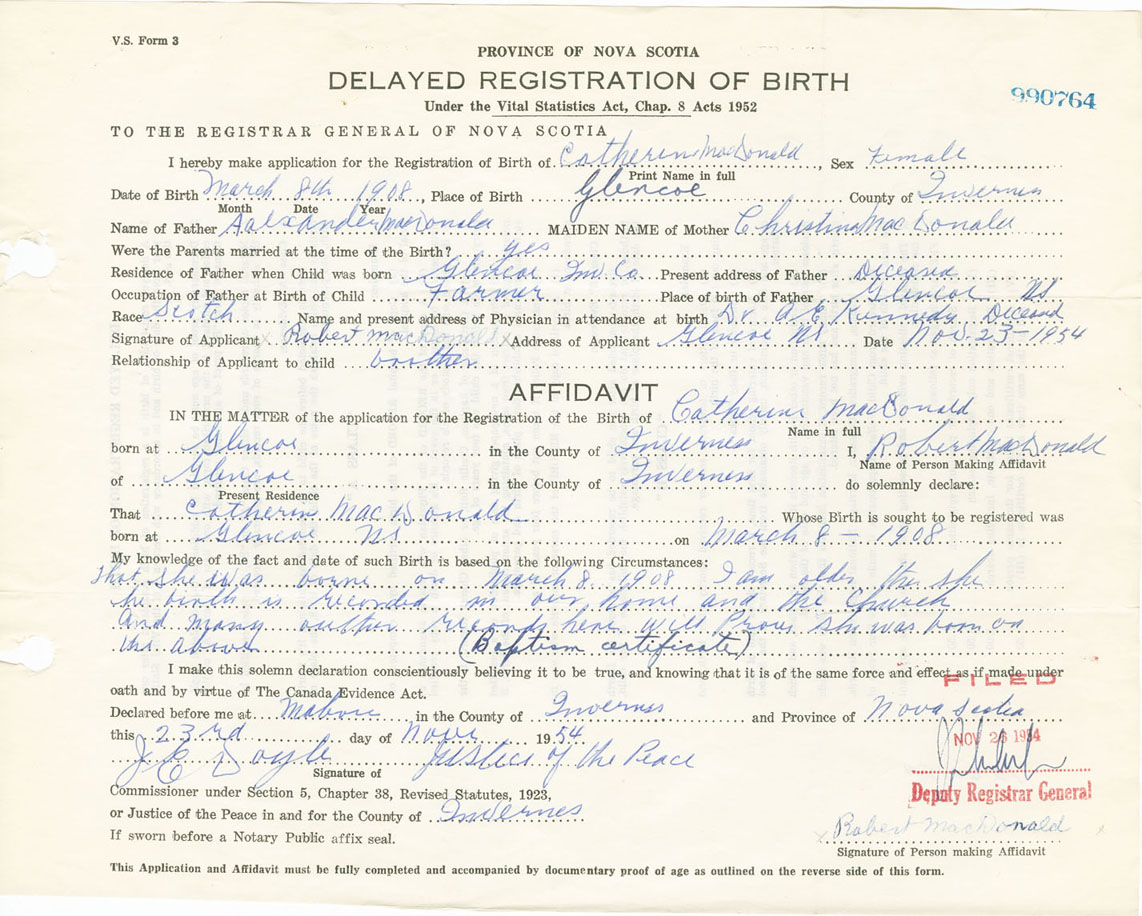 V.S. Form 3
PROVINCE OF NOVA SCOTIA
DELAYED REGISTRATION OF BIRTH
990764
Under the Vital Statistics Act, Chap. 8 Acts 1952
TO THE REGISTRAR GENERAL OF NOVA SCOTIA
I hereby make application for the Registration of Birth of Catherin MacDonald, Sex Female
Print Name in full
Date of Birth March 8th 1908, Place of Birth Glencoe County of Inverness
Month Date Year
Name of Father Aalxander MacDonald MAIDEN NAME of Mother Christina MacDonald
Were the Parents married at the time of the Birth? yes
Residence of Father when Child was born Glencoe Inv. Co. Present address of Father Diceased
Occupation of Father at Birth of Child Farmer Place of birth of Father Glencoe NS
Race Scotch Name and present address of Physician in attendance at birth Dr. A E Kennedy Diceased
Signature of Applicant x Robert MacDonald x Address of Applicant Glencoe NS Date Nov. 23-1954
Relationship of Applicant to child brother
AFFIDAVIT
IN THE MATTER of the application for the Registration of the Birth of Catherin MacDonald
Name in full
born at Glencoe in the County of Inverness I, Robert MacDonald
Name of Person Making Affidavit
of Glencoe in the County of Inverness do solemnly declare:
Present Residence
That Catherin MacDonald Whose Birth is sought to be registered was
born at Glencoe NS on March 8 - 1908
My knowledge of the fact and date of such Birth is based on the following Circumstances:
That she was borne on March 8 1908 I am older the she
he birth is recorded in our home and the Church
And many outher records here will Prove she was born on
the above (Baptism certificate)
I make this solemn declaration conscientiously believing it to be true, and knowing that it is of the same force and effect as if made under
oath and by virtue of The Canada Evidence Act.
FILED
Declared before me at Mabou in the County of Inverness and Province of Nova Scotia
this 23rd day of Nove 1954
NOV 26 1954
J E Doyle Justice of the Peace
Signature of
Deputy Registrar General
Commissioner under Section 5, Chapter 38, Revised Statutes, 1923,
or Justice of the Peace in and for the County of Invernes
x Robert MacDonald
If sworn before a Notary Public affix seal.
Signature of Person making Affidavit
This Application and Affidavit must be fully completed and accompanied by documentary proof of age as outlined on the reverse side of this form.